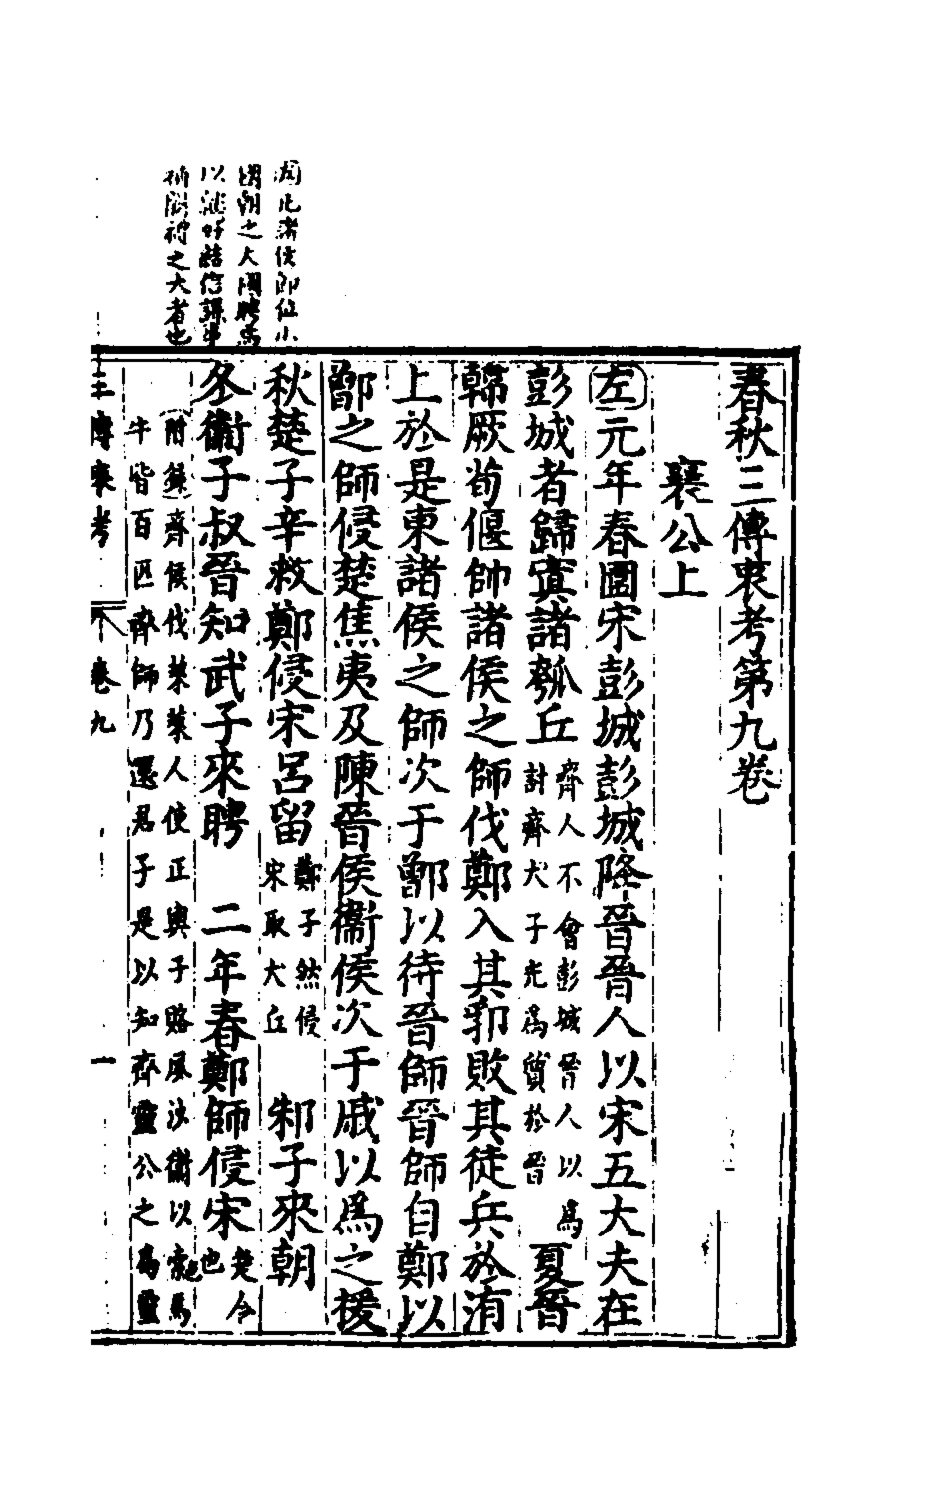 春秋三傳衷考第九卷
襄公上
左元年春圍宋彭城彭城降晉晉人以宋五大夫在
彭城者歸寘諸瓠丘齊人不會彭城晉人以爲討齊大子光爲質於晉夏晉
韓厥荀偃帥諸侯之師伐鄭入其郛敗其徒兵於洧
上於是東諸侯之師次于鄫以待晉師晉師自鄭以
鄫之師侵楚焦夷及陳晉侯衛侯次于戚以爲之援
秋楚子辛救鄭侵宋呂留鄭子然侵宋取犬丘 邾子來朝
冬衛子叔晉知武子來聘 二年春鄭師侵宋楚令也
附錄齊侯伐萊萊人使正輿子賂夙沙衛以索馬
牛皆百匹齊師乃還君子是以知齊靈公之爲靈也
三傳衷考 卷九 一
凡諸侯即位小
國朝之大國聘焉
以繼好結信謀事
補闕禮之大者也